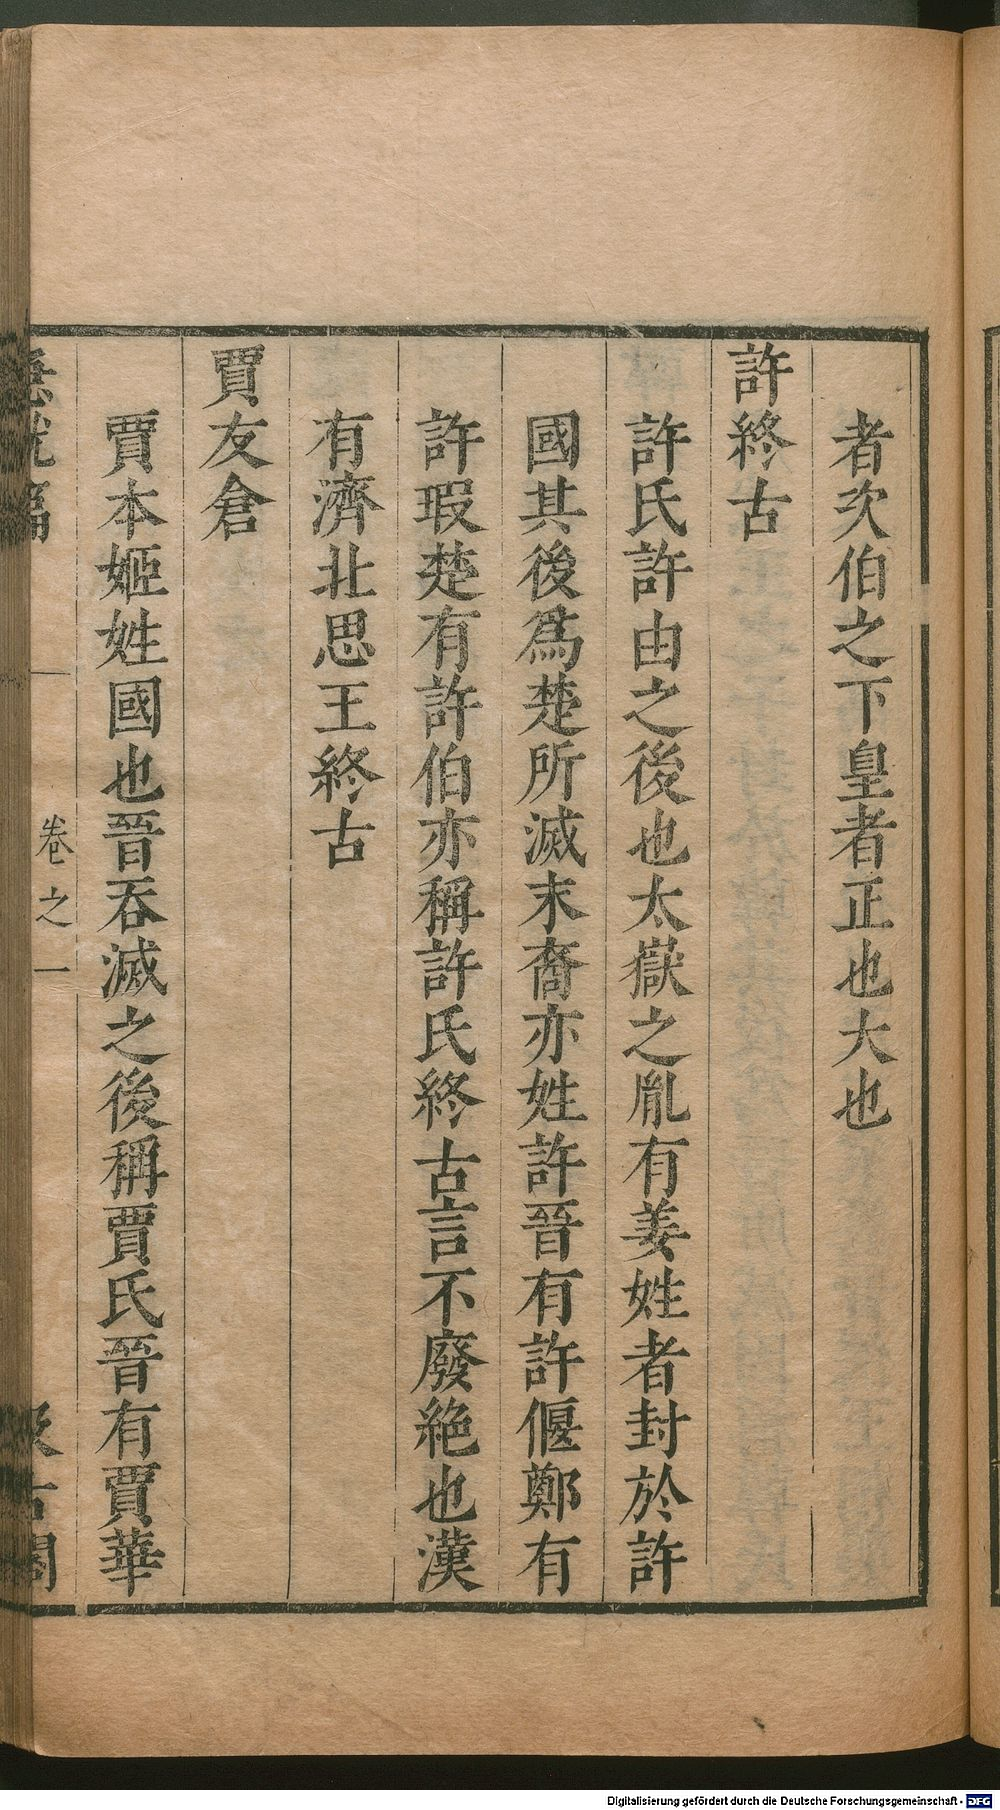 者次伯之下皇者正也大也
許終古
許氏許由之後也太嶽之胤有姜姓者封於許
國其後爲楚所滅末裔亦姓許晉有許偃鄭有
許瑕楚有許伯亦稱許氏終古言不廢絶也漢
有濟北思王終古
賈友倉
賈本姬姓國也晉吞滅之後稱賈氏晉有賈華
急就篇 卷之一 汲古閣
Digitalisierung gefördert durch die Deutsche Forschungsgemeinschaft - DFG